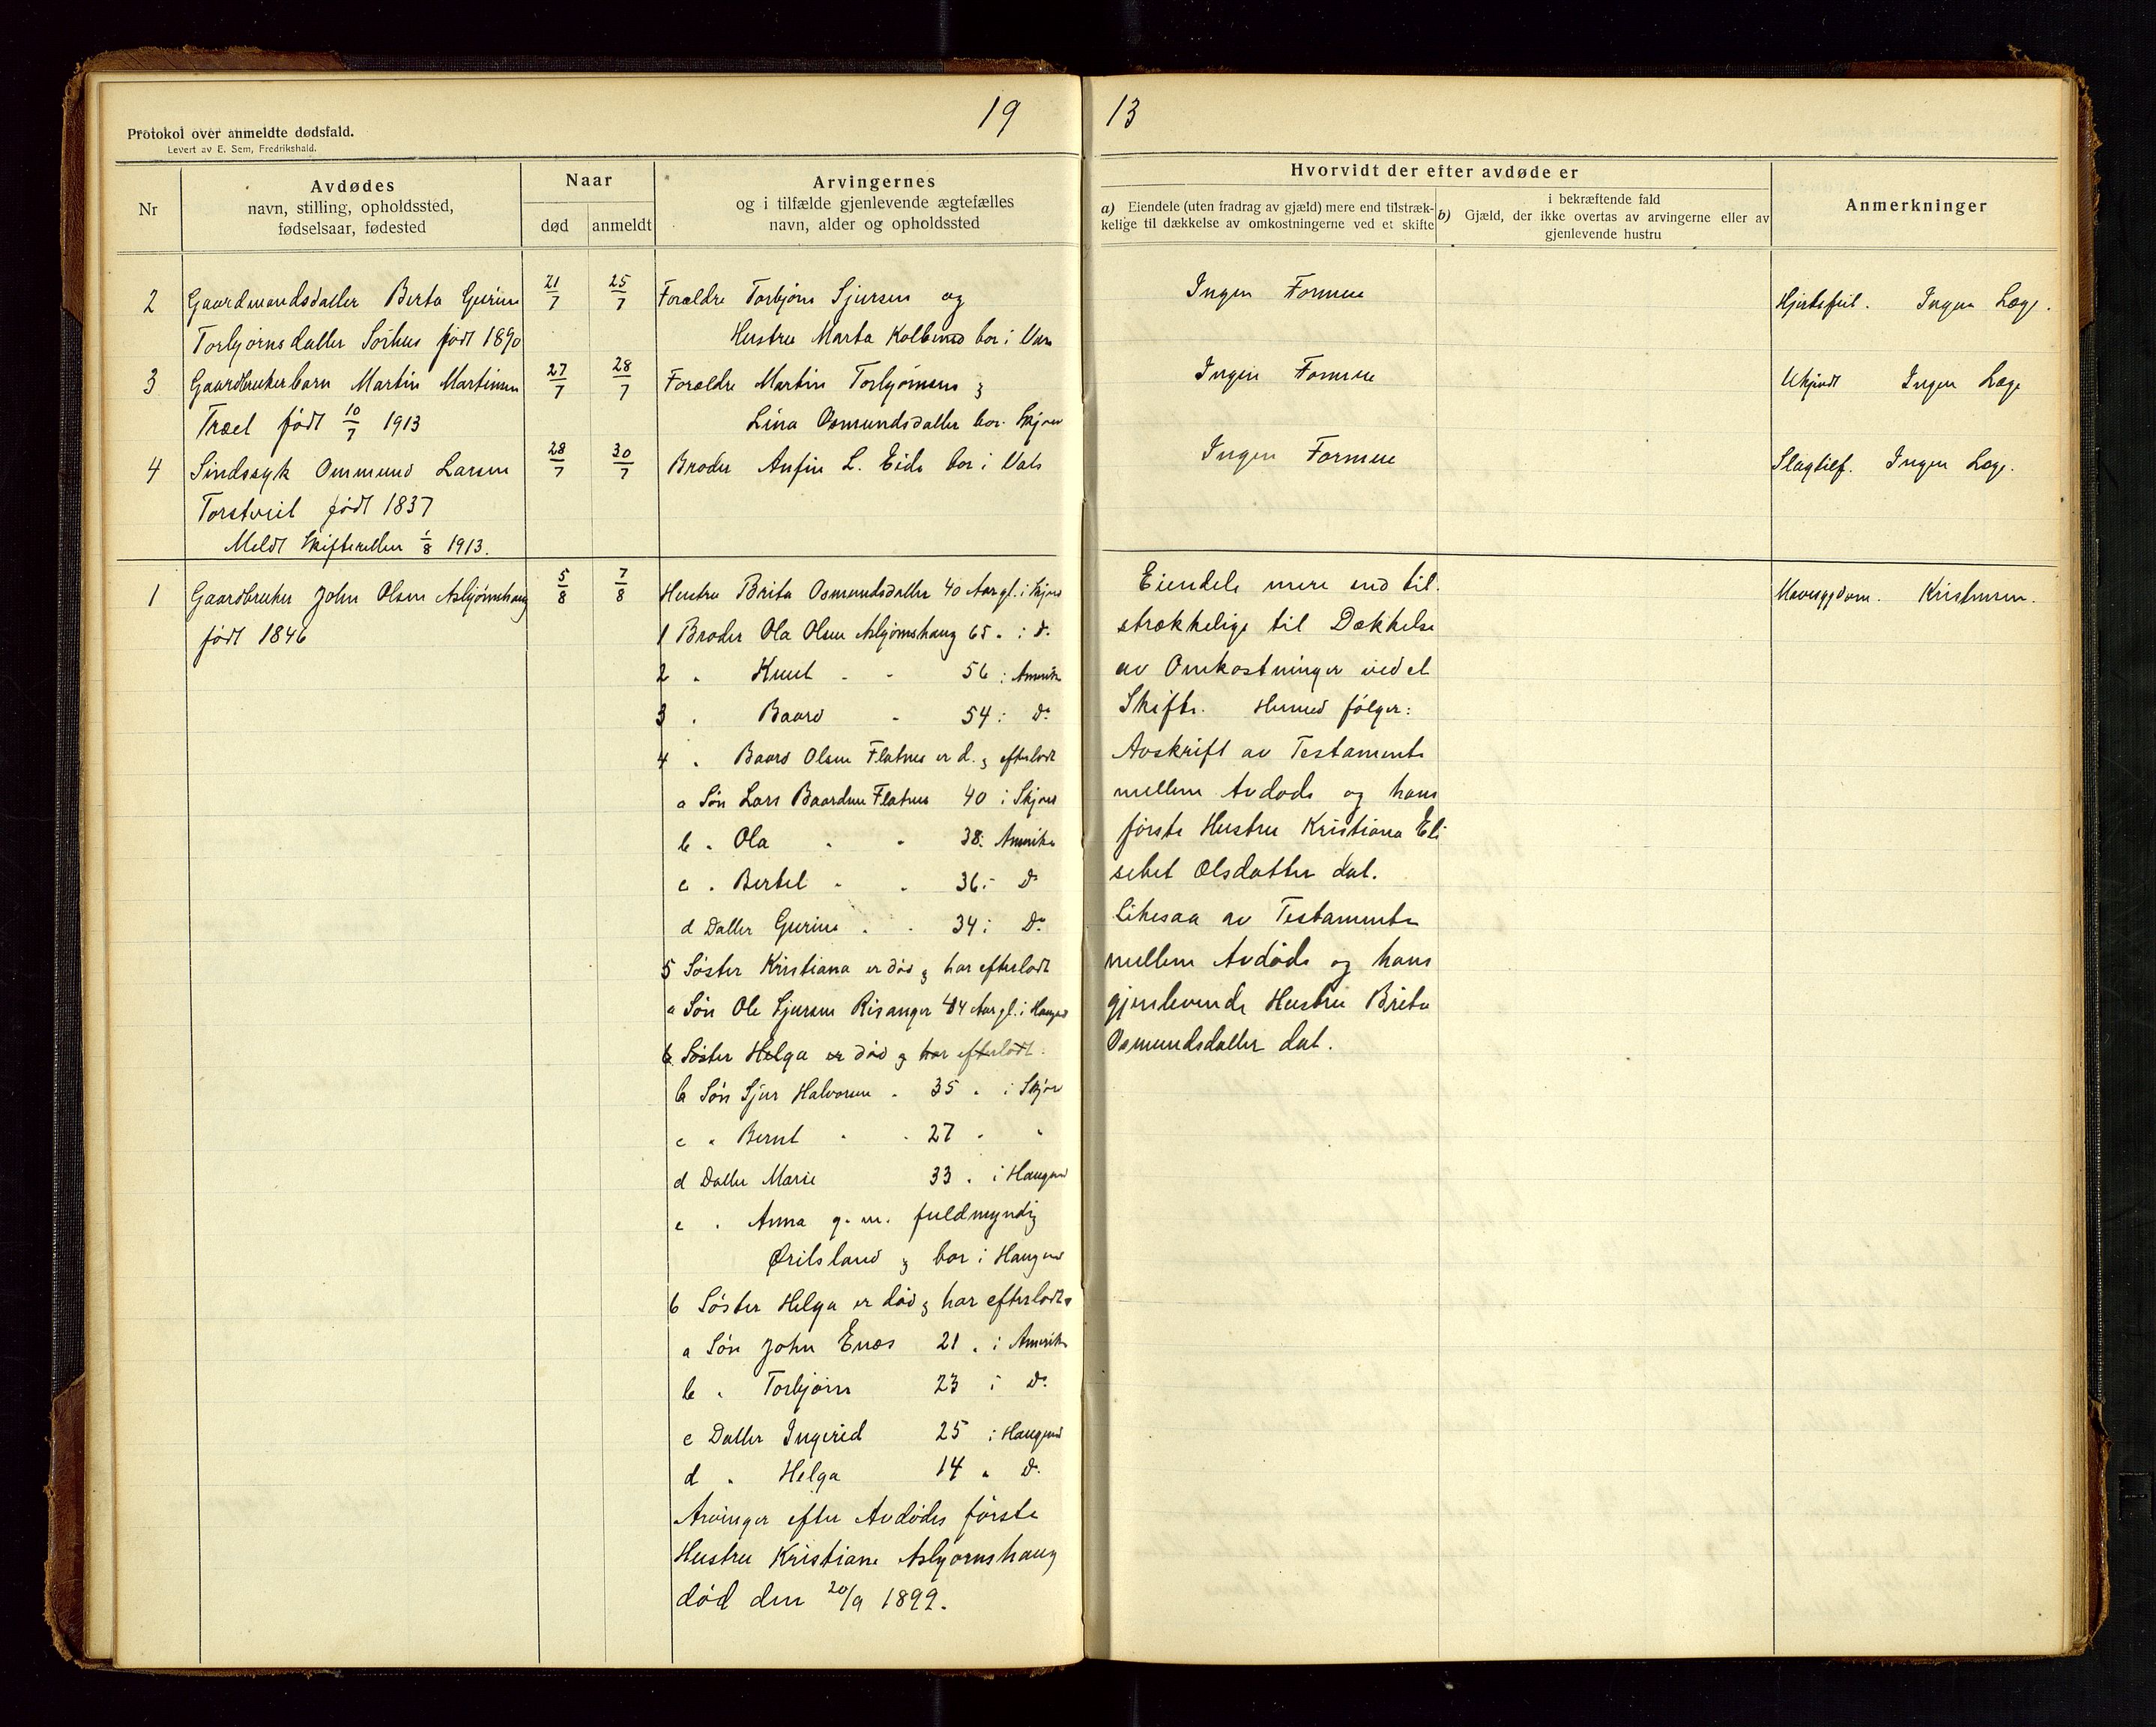 19 13
Protokol over anmeldte dødsfald.
Levert av E. Sem, Fredrikshald.
Nr
Avdødes
navn, stilling, opholdssted,
fødselsaar, fødested
Naar
død
anmeldt
Arvingernes
og i tilfælde gjenlevende ægtefælles
navn, alder og opholdssted
Hvorvidt der efter avdøde er
a) Eiendele (uten fradrag av gjæld) mere end tilstræk-
kelige til dækkelse av omkostningerne ved et skifte
i bekræftende fald
b) Gjæld, der ikke overtas av arvingerne eller av
gjenlevende hustru
Anmerkninger
2 Gaardmandsdatter Berta Gurine 21/7 25/7 Forældre Torbjørn Sjursen og Ingen Formue Hjertefeil. Ingen Læge.
Torbjørnsdatter Sørhus født 1890 Hustru Marta bor i Vats
3 Gaardbrukerbarn Martin Martinsen 27/7 28/7 Forældre Martin Torbjørnsen & Ingen Formue Ukjendt Ingen Læge
Træet født 10/7 1913 Lina Osmundsdatter bor Skjold
4 Sindssyk Ommund Larsen 28/7 30/7 Broder Anfin L. Eide bor i Vats Ingen Formue Slagtilf. Ingen Læge.
Torstveit født 1837
Meldt Skifteretten 1/8 1913.
1 Gaardbruker John Olsen Asbjørnshaug 5/8 7/8 Hustru Brita Osmundsdatter 40 Aar gl. i Skjold
født 1846
1 Broder Ola Olsen Asbjørnshaug 65 " i do
2 " Knut " " 56 i Amerika
3 " Baard " 54 i Do
4 " Baard Olsen Flatnes er d. & efterladt
a Søn Lars Baardsen Flatnes 40 i Skjold
b " Ola " " 38 i Amerika
c " Bertel " " 36 i Do
d Datter Gurine " " 34 i Do
5 Søster Kristiana er død & har efterladt
a Søn Ole Sjursen Risanger 44 Aar gl. i Haugesund
6 Søster Helga er død & har efterladt.
b Søn Sjur Halvorsen " 35 " i Skjold
c " Bernt " " 27 " "
d Datter Marie 33 " i Haugesund
e " Anna g. m. fuldmyndig
Ørilsland & bor i Haugesund
6 Søster Helga er død & har efterladt
a Søn John Enæs 21 " i Amerika
b " Torbjørn 23 i Do
c Datter Ingerid 25 i Haugesund
d " Helga 14 " Do
Arvinger efter Avdødes første
Hustru Kristiane Asbjørnshaug
død den 20/9 1899.
Eiendele mere end til-
strækkelige til Dækkelse
av Omkostninger ved et
Skifte. Hermed følger:
Avskrift av Testamente
mellem Avdøde og hans
første Hustru Kristiana Eli
sebet Olsdatter dat.
Likesaa av Testamente
mellem Avdøde og hans
gjenlevende Hustru Brita
Osmundsdatter dat.
Mavesygdom. Kristensen.